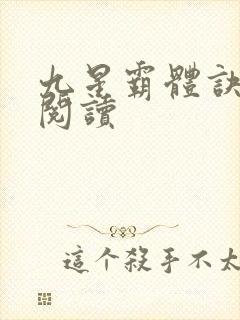 九星霸體訣
閱讀
這个殺手不太